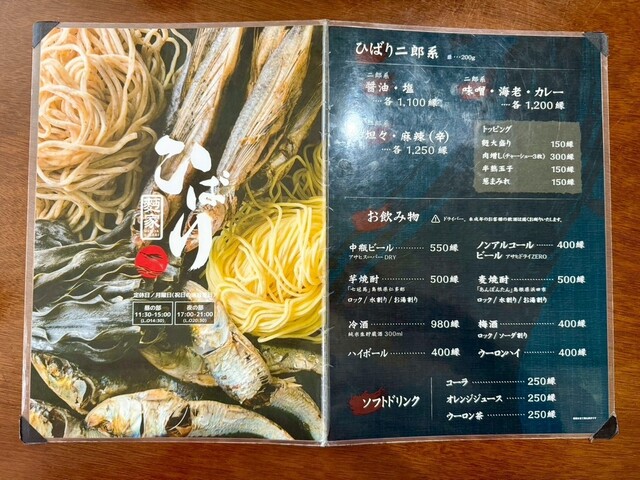 ひばり
麺家
定休日/月曜日(祝日の場合翌日)
昼の部
11:30-15:00
(L.O14:30)
夜の部
17:00-21:00
(L.O20:30)
ひばり二郎系 …200g
二郎系
醤油・塩
……各 1,100縁
二郎系
味噌・海老・カレー
……各 1,200縁
坦々・麻辣(辛)
……各 1,250縁
トッピング
麺大盛り 150縁
肉増し(チャーシュー3枚) 300縁
半熟玉子 150縁
葱まみれ 150縁
お飲み物
ドライバー、未成年のお客様の飲酒は固くお断りいたします。
中瓶ビール 550縁
アサヒスーパーDRY
ノンアルコール 400縁
ビール アサヒドライZERO
芋焼酎 500縁
ロック/水割り/お湯割り
麦焼酎 500縁
ロック/水割り/お湯割り
冷酒 980縁
純米生貯蔵酒 300ml
梅酒 400縁
ロック/ソーダ割り
ハイボール 400縁
ウーロンハイ 400縁
ソフトドリンク
コーラ 250縁
オレンジジュース 250縁
ウーロン茶 250縁